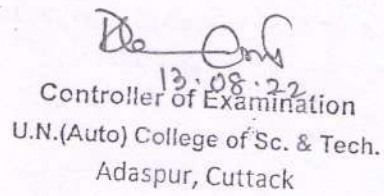 13.08.22
Controller of Examination
U.N.(Auto) College of Sc. & Tech.
Adaspur, Cuttack